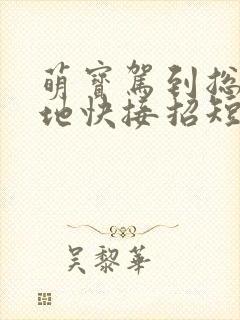 萌寶駕到總
地快接招短
吳黎華